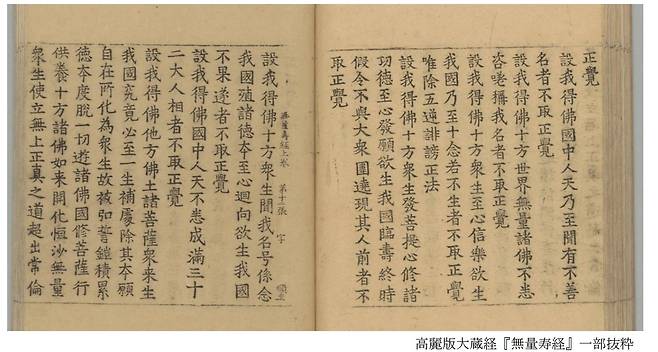 正覺
設我得佛國中人天乃至聞有不善
名者不取正覺
設我得佛十方世界無量諸佛不悉
咨嗟稱我名者不取正覺
設我得佛十方衆生至心信樂欲生
我國乃至十念若不生者不取正覺
唯除五逆誹謗正法
設我得佛十方衆生發菩提心修諸
功德至心發願欲生我國臨壽終時
假令不與大衆圍遶現其人前者不
取正覺
設我得佛十方衆生聞我名号係念
無量壽經上卷 第 張 字
我國殖諸德本至心迴向欲生我國
不果遂者不取正覺
設我得佛國中人天不悉成滿三十
二大人相者不取正覺
設我得佛他方佛土諸菩薩衆来生
我國究竟必至一生補處除其本願
自在所化為衆生故被弘誓鎧積累
德本度脱一切遊諸佛國修菩薩行
供養十方諸佛如来開化恒沙無量
衆生使立無上正真之道超出常倫
高麗版大蔵経『無量寿経』一部抜粋